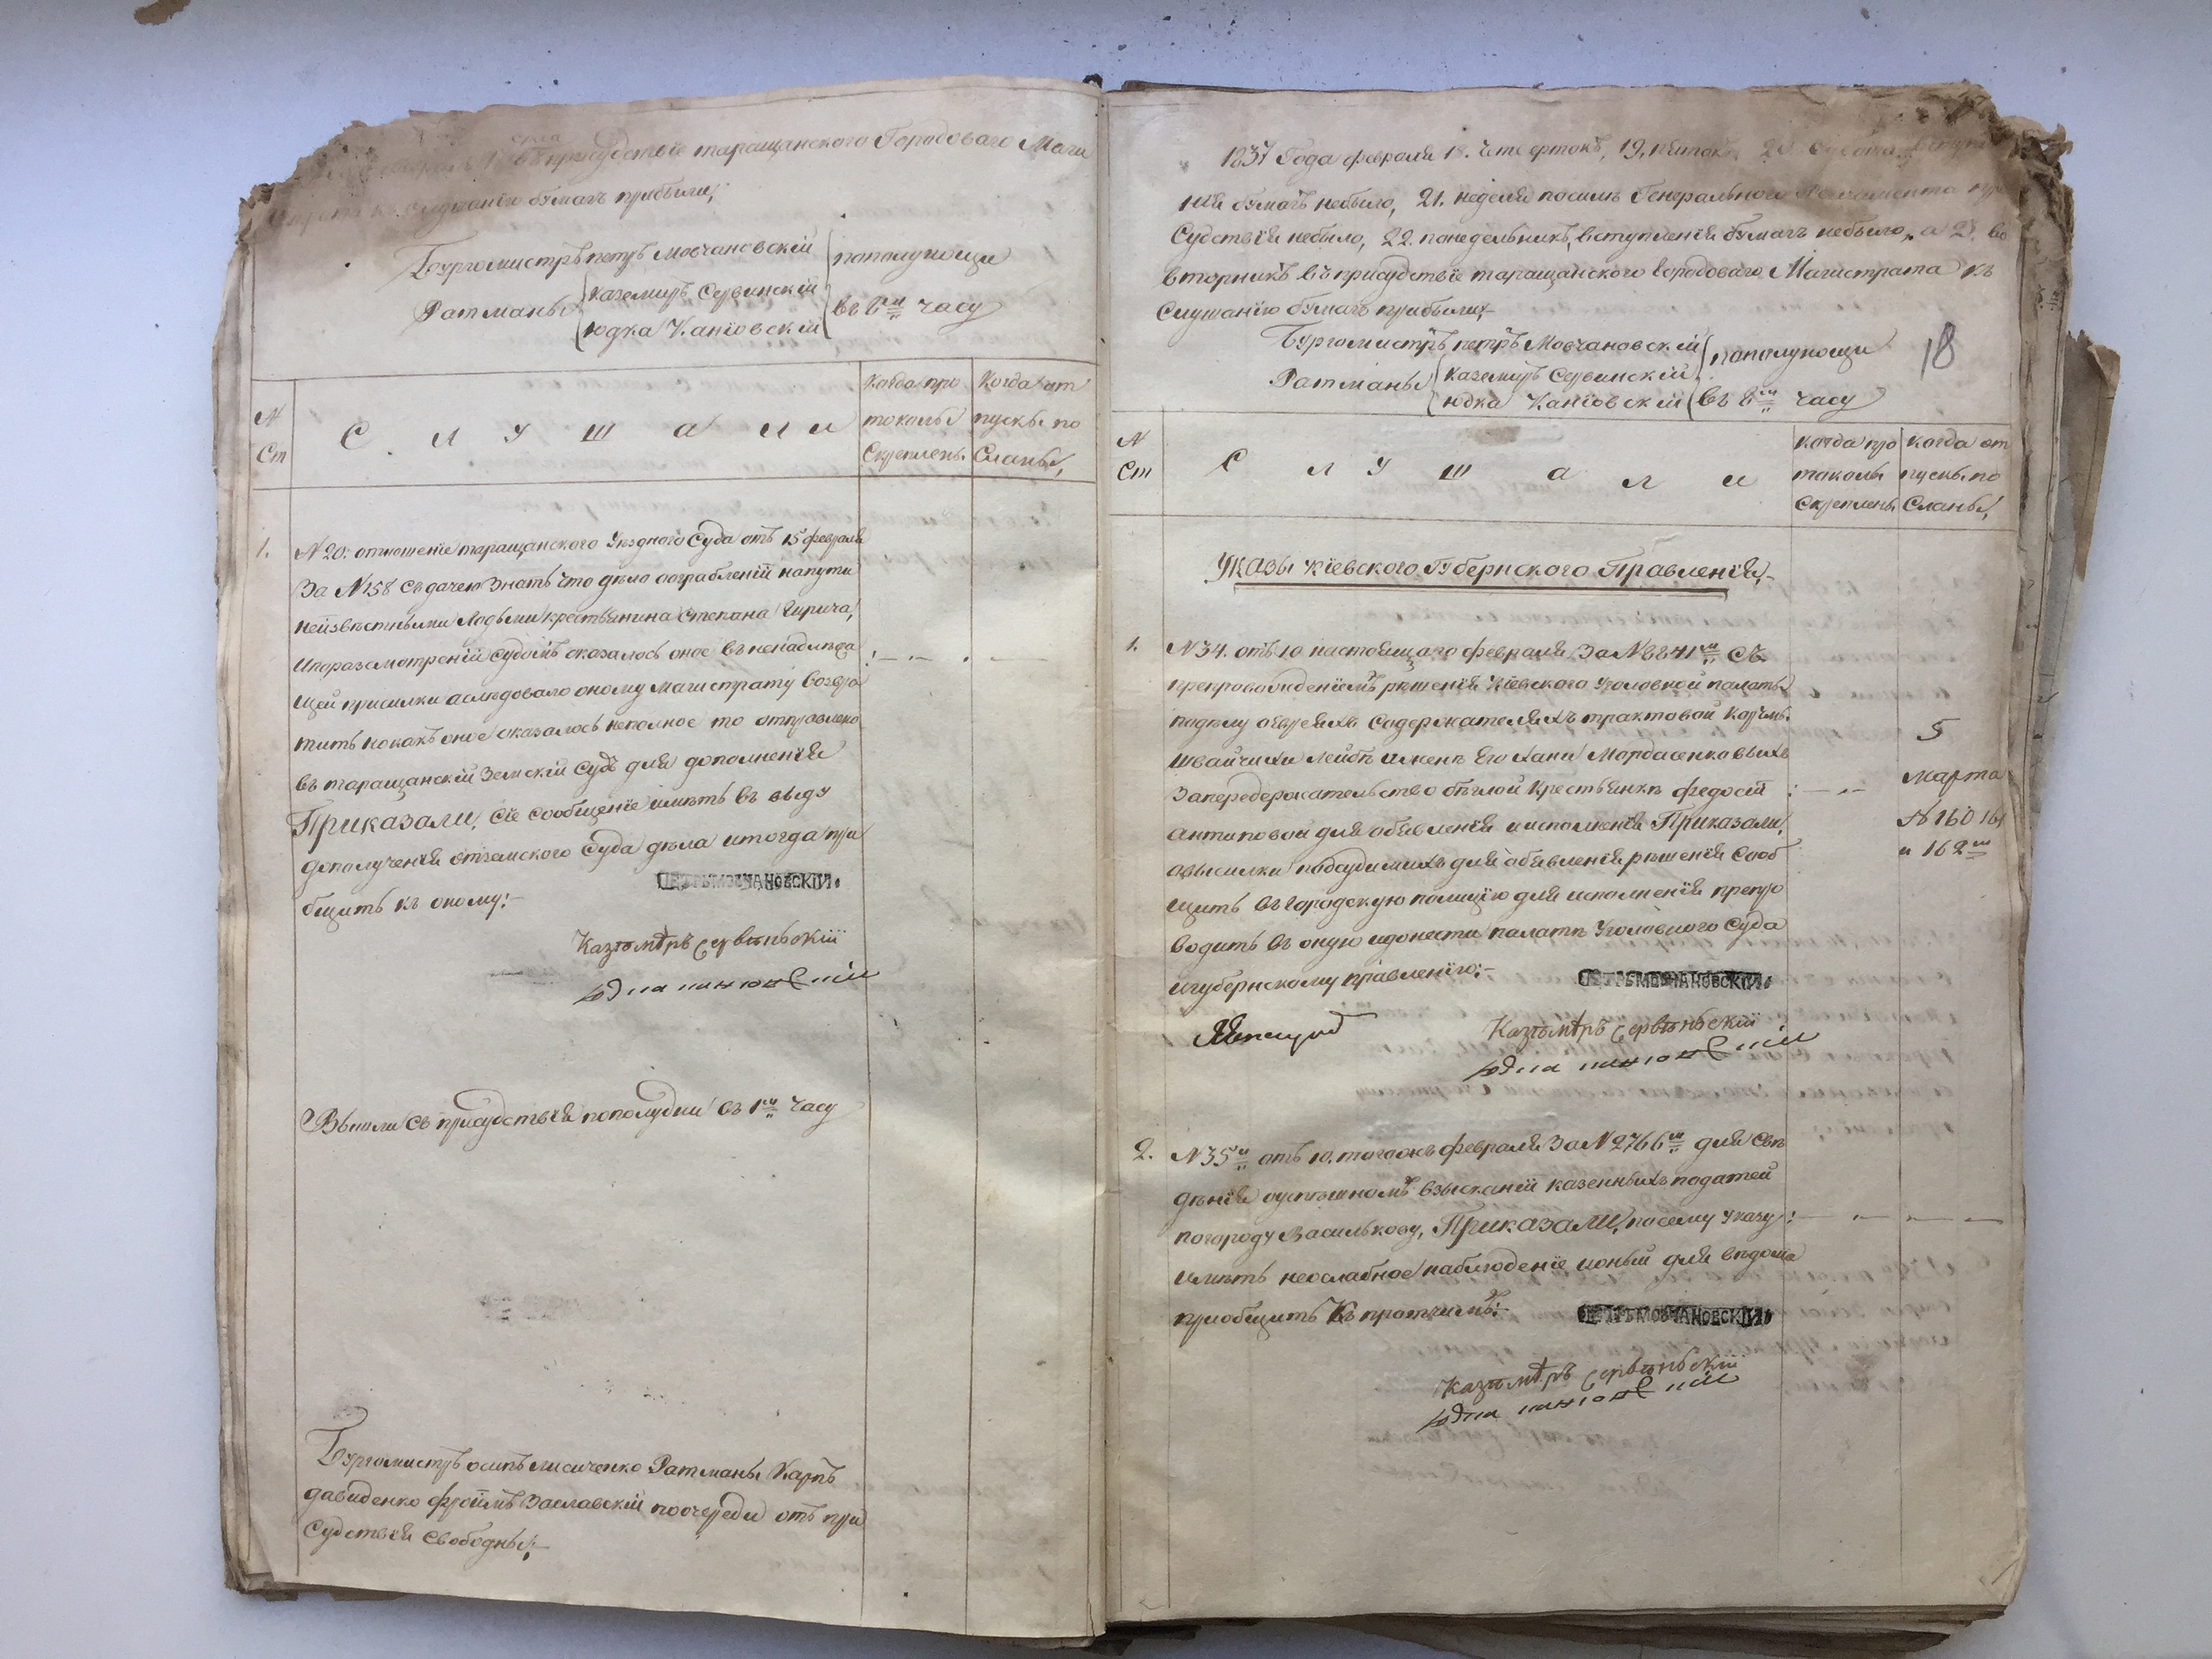 въ присудствіе таращанского Городоваго Маги
слушанію бумагъ прибыли,
Бургомистръ петръ Мовчановскій
пополуночи
Ратманы
каземиръ Сервинскій
юдка Каніовскій
въ 8мъ часу
N
Ст
С л у ш а л и
Когда про
токолы
Скреплены
Когда от
пуски по
Сланы,
1.
N 20: отношеніе таращанского Уезднаго Суда отъ 15 февраля
За N 158 Съ дачею Знать что дѣло ограбленій напути
неизвѣстными Людьми крестьянина Степана
Ипоразсмотреній судомъ оказалось оное въ ненадлежа
щей присилки аслѣдовало оному магистрату Возвра
тить нокакъ оное оказалось неполное то отправлено
въ таращанскій Земскій Судъ для дополненія
Приказали, Сіе сообщеніе имѣть въ виду
дополученія отземского Суда дѣла итогда прі
общить къ оному:-
ПЕТРЪ МОВЧАНОВСКІЙ
Казѣмѣръ Сервѣньскій
юдка каніовскій
Вышли Съ присудствія пополудни въ 1мъ часу
Бургомистръ осипъ лисиченко Ратманы Карпъ
давиденко фроимъ Заславскій поочереди отъ при
Судствія Свободны,-
1837 Года февраля 18. Четвертокъ, 19, пятокъ, 20 Субота вступле
нія бумагъ небыло, 21. неделя посилъ Генерального Регламента при
Судствія небыло, 22. понедельникъ, вступленія бумагъ небыло, а 23. во
вторникъ въ присудствіе таращанского городоваго Магистрата къ
Слушанію бумагъ прибыли,-
Бургомистръ петръ Мовчановскій
пополуночи
18
Ратманы
каземиръ Сервинскій
юдка Каніовскій
въ 8мъ часу
N
Ст
С л у ш а л и
Когда про
токолы
Скреплены
Когда от
пуски по
Сланы,
Указы Кіевского Губернского Правленія,-
1.
N 34. отъ 10 настоящаго февраля За N 8841мъ Съ
препровожденіемъ рѣшенія Кіевского Уголовной палаты
подѣлу оевреяхъ Содержателяхъ трактовой Корчмы
Лейбѣ ижене Его Хани
Запередержательство бѣглой Крестьянки федосій
Антиповой для объявленія иисполненія Приказали,
овысилки подсудимихъ для объявленія рѣшенія Сооб
щить въ городскую полицію для исполненія препро
водить въ оную идонести палатѣ Уголовного Суда
игубернскому правленію:-
5
марта
N 160 161
и 162мъ
ПЕТРЪ МОВЧАНОВСКІЙ
Казѣмѣръ Сервѣньскій
юдка каніовскій
2.
N 35й отъ 10. тогожъ февраля За N 2766мъ для Свѣ
дѣнія оуспѣшномъ взысканій казенныхъ податей
погороду Василькову, Приказали, посему указу
имѣть неослабное наблюденіе ионый для вѣдома
приобщить Къ протчимъ:-
ПЕТРЪ МОВЧАНОВСКІЙ
Казѣмѣръ Сервѣньскій
юдка каніовскій